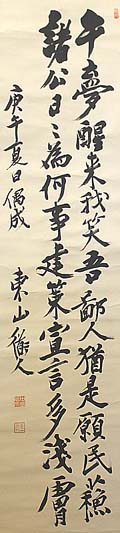 午夢醒来我笑吾鄙人猶是願民蘓
諸公日々為何事建策宣言多浅膚
庚午夏日偶成
東山人